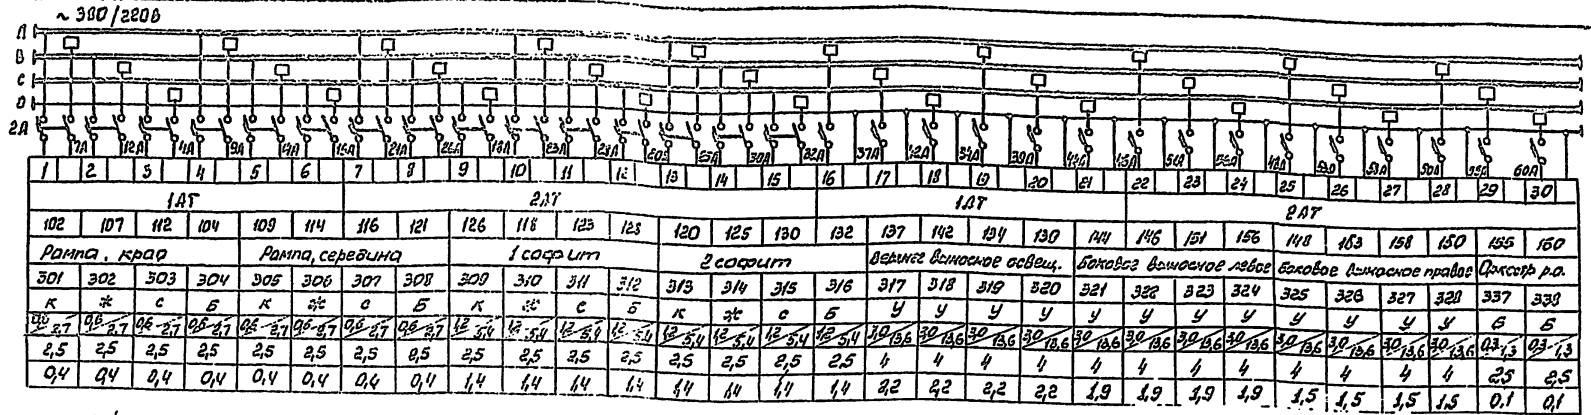 ~ 380/220В
А
В
С
0
2А 7А 12А 4А 9А 14А 16А 21А 26А 18А 23А 28А 20А 25А 30А 32А 37А 42А 34А 39А 44А 46А 51А 56А 48А 53А 58А 50А 55А 60А
1 2 3 4 5 6 7 8 9 10 11 12 13 14 15 16 17 18 19 20 21 22 23 24 25 26 27 28 29 30
1АТ 2АТ 1АТ 2АТ
102 107 112 104 109 114 116 121 126 118 123 128 120 125 130 132 137 142 134 139 144 146 151 156 148 153 158 150 155 160
Рампа, край Рампа, середина 1 софит 2 софит Верхнее выносное освещ. Боковое выносное левое Боковое выносное правое Оркестр р.о.
301 302 303 304 305 306 307 308 309 310 311 312 313 314 315 316 317 318 319 320 321 322 323 324 325 326 327 328 337 338
К Ж С Б К Ж С Б К Ж С Б К Ж С Б У У У У У У У У У У У У Б Б
0,6/2,7 0,6/2,7 0,6/2,7 0,6/2,7 0,6/2,7 0,6/2,7 0,6/2,7 0,6/2,7 1,2/5,4 1,2/5,4 1,2/5,4 1,2/5,4 1,2/5,4 1,2/5,4 1,2/5,4 1,2/5,4 3,0/13,6 3,0/13,6 3,0/13,6 3,0/13,6 3,0/13,6 3,0/13,6 3,0/13,6 3,0/13,6 3,0/13,6 3,0/13,6 3,0/13,6 3,0/13,6 0,3/1,3 0,3/1,3
2,5 2,5 2,5 2,5 2,5 2,5 2,5 2,5 2,5 2,5 2,5 2,5 2,5 2,5 2,5 2,5 4 4 4 4 4 4 4 4 4 4 4 4 2,5 2,5
0,4 0,4 0,4 0,4 0,4 0,4 0,4 0,4 1,4 1,4 1,4 1,4 1,4 1,4 1,4 1,4 2,2 2,2 2,2 2,2 1,9 1,9 1,9 1,9 1,5 1,5 1,5 1,5 0,1 0,1